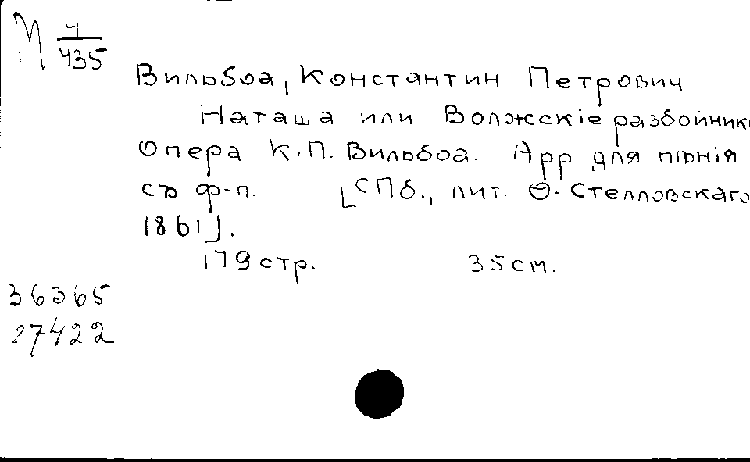 М 4/435
Вильбоа, Константин Петрович
Наташа или Волжскіе разбойник
Опера К.П. Вильбоа. Арр для пѣнія
съ ф-п. [СПб., лит. Ѳ. Стелловскаго
1861].
179 стр. 35 см.
36365
27422